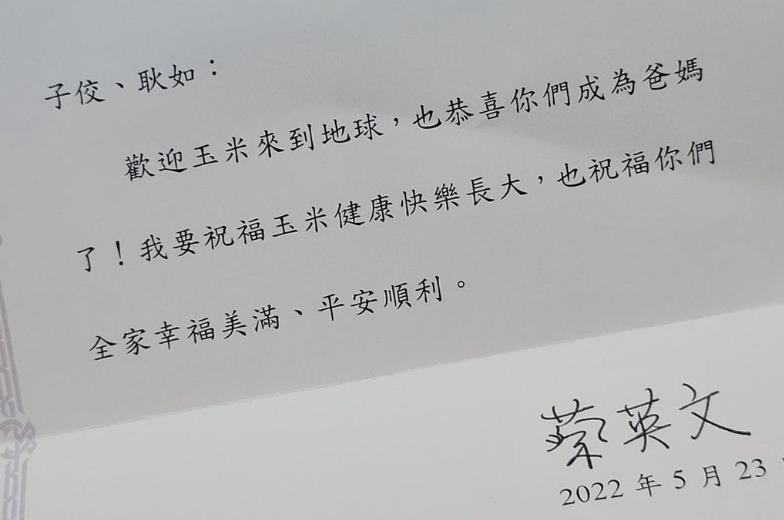 子佼、耿如：
歡迎玉米來到地球，也恭喜你們成為爸媽
了！我要祝福玉米健康快樂長大，也祝福你們
全家幸福美滿、平安順利。
蔡英文
2022 年 5 月 23